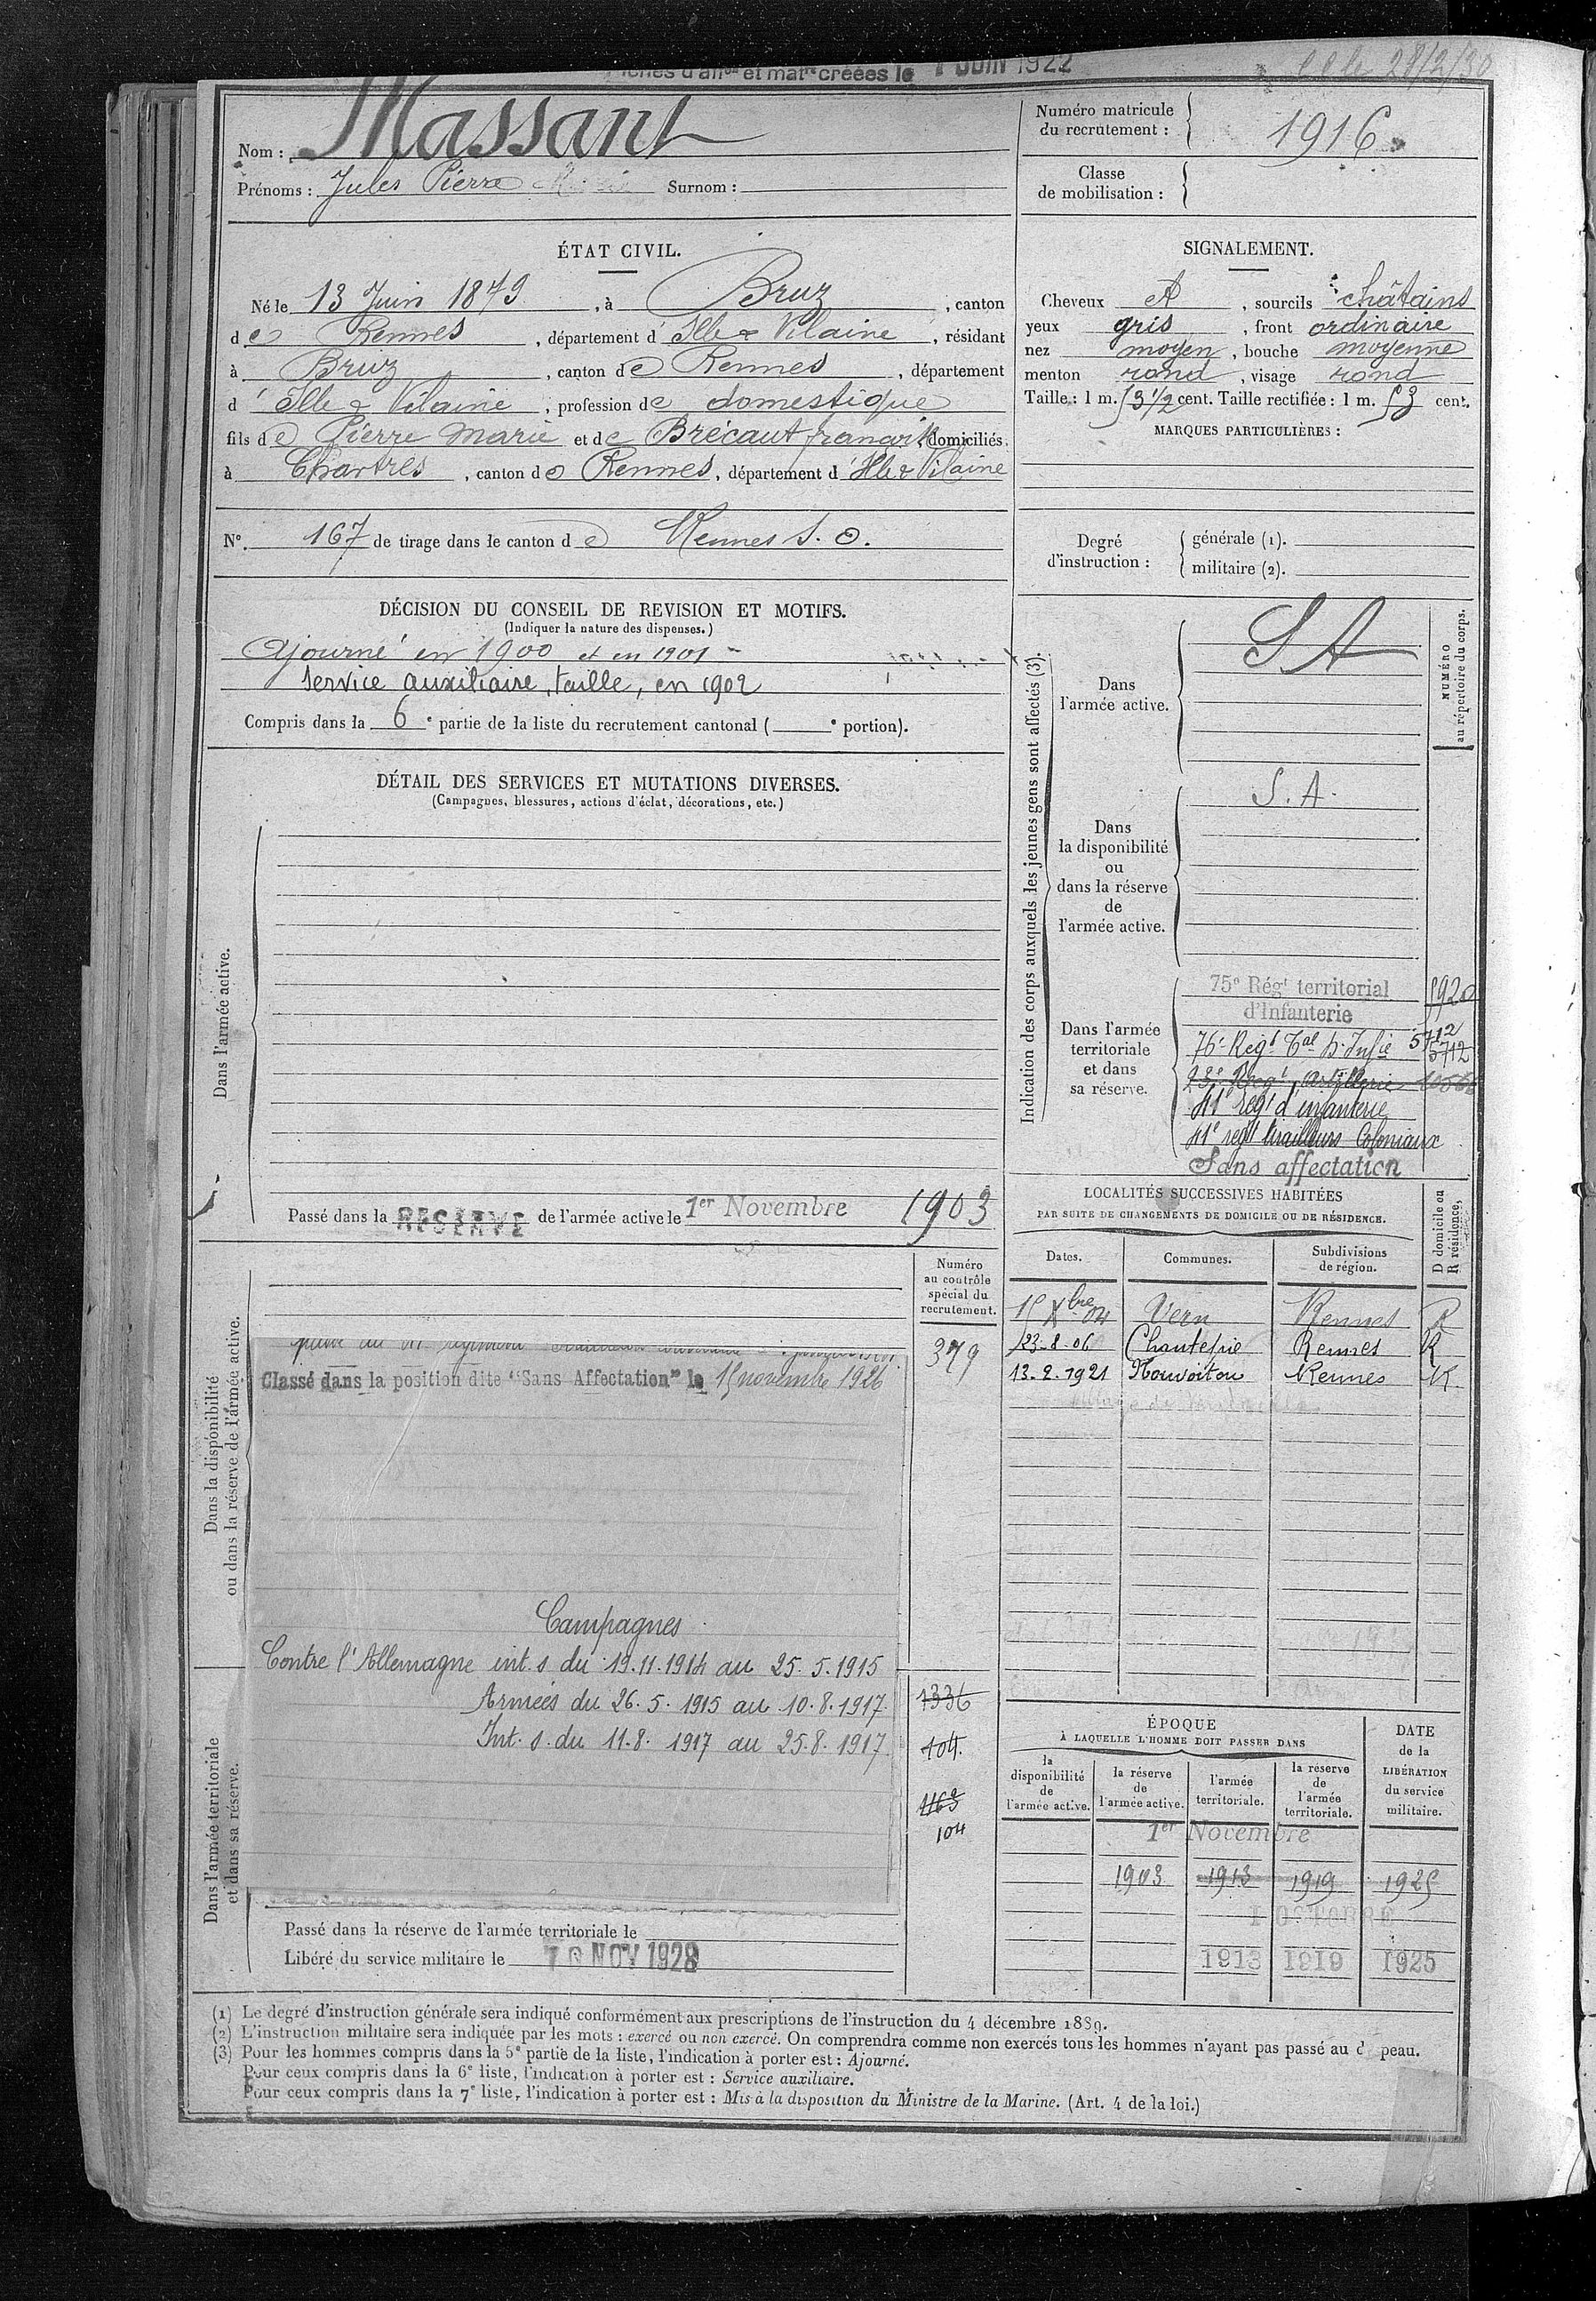 et matres créées le 1 JUIN 1922
28/2/30
Nom : Massant
Prénoms : Jules Pierre Surnom :
Numéro matricule du recrutement : 1916
Classe de mobilisation :
ÉTAT CIVIL.
Né le 13 Juin 1879, à Bruz, canton
de Rennes, département d'Ille & Vilaine, résidant
à Bruz, canton de Rennes, département
d'Ille & Vilaine, profession de domestique
fils de Pierre Marie et de Brécaut domiciliés
à Chartres, canton de Rennes, département d'Ille & Vilaine
N° 167 de tirage dans le canton de Rennes S. O.
SIGNALEMENT.
Cheveux , sourcils châtains
yeux gris, front ordinaire
nez moyen, bouche moyenne
menton rond, visage rond
Taille : 1 m. 53 1/2 cent. Taille rectifiée : 1 m. 53 cent.
MARQUES PARTICULIÈRES :
Degré d'instruction : générale (1).
militaire (2).
DÉCISION DU CONSEIL DE REVISION ET MOTIFS.
(Indiquer la nature des dispenses.)
Ajourné en 1900 et en 1901
Service auxiliaire, taille, en 1902
Compris dans la 6e partie de la liste du recrutement cantonal ( e portion).
DÉTAIL DES SERVICES ET MUTATIONS DIVERSES.
(Campagnes, blessures, actions d'éclat, décorations, etc.)
Dans l'armée active.
Passé dans la RÉSERVE de l'armée active le 1er Novembre 1903
Indication des corps auxquels les jeunes gens sont affectés (3).
NUMÉRO au répertoire du corps.
Dans l'armée active.
S A
Dans la disponibilité ou dans la réserve de l'armée active.
S. A.
Dans l'armée territoriale et dans sa réserve.
75e Régt territorial d'Infanterie 5920
76e Regt Tal d'Infie 5712
5712
Regt Artillerie
41e regt d'infanterie
41e regt tirailleurs Coloniaux
Sans affectation
LOCALITÉS SUCCESSIVES HABITÉES
PAR SUITE DE CHANGEMENTS DE DOMICILE OU DE RÉSIDENCE.
Dates. Communes. Subdivisions de région. D domicile ou R résidence.
15 Xbre 04 Vern Rennes R
23-8-06 Chantepie Rennes R
13-2-1921 Nouvoitou Rennes R
Dans la disponibilité ou dans la réserve de l'armée active.
Numéro au contrôle spécial du recrutement.
379
Classé dans la position dite "Sans Affectation" le 15 novembre 1926
Campagnes
Contre l'Allemagne int. s. du 19.11.1914 au 25.5.1915
Armées du 26.5.1915 au 10.8.1917
Int. s. du 11.8.1917 au 25.8.1917
1336
104
1163
104
Dans l'armée territoriale et dans sa réserve.
Passé dans la réserve de l'armée territoriale le
Libéré du service militaire le 10 NOV 1928
ÉPOQUE
À LAQUELLE L'HOMME DOIT PASSER DANS
DATE de la LIBÉRATION du service militaire.
la disponibilité de l'armée active. la réserve de l'armée active. l'armée territoriale. la réserve de l'armée territoriale.
1er Novembre
1903 1913 1919 1925
1 OCTOBRE
1913 1919 1925
(1) Le degré d'instruction générale sera indiqué conformément aux prescriptions de l'instruction du 4 décembre 1889.
(2) L'instruction militaire sera indiquée par les mots : exercé ou non exercé. On comprendra comme non exercés tous les hommes n'ayant pas passé au d peau.
(3) Pour les hommes compris dans la 5e partie de la liste, l'indication à porter est : Ajourné.
Pour ceux compris dans la 6e liste, l'indication à porter est : Service auxiliaire.
Pour ceux compris dans la 7e liste, l'indication à porter est : Mis à la disposition du Ministre de la Marine. (Art. 4 de la loi.)